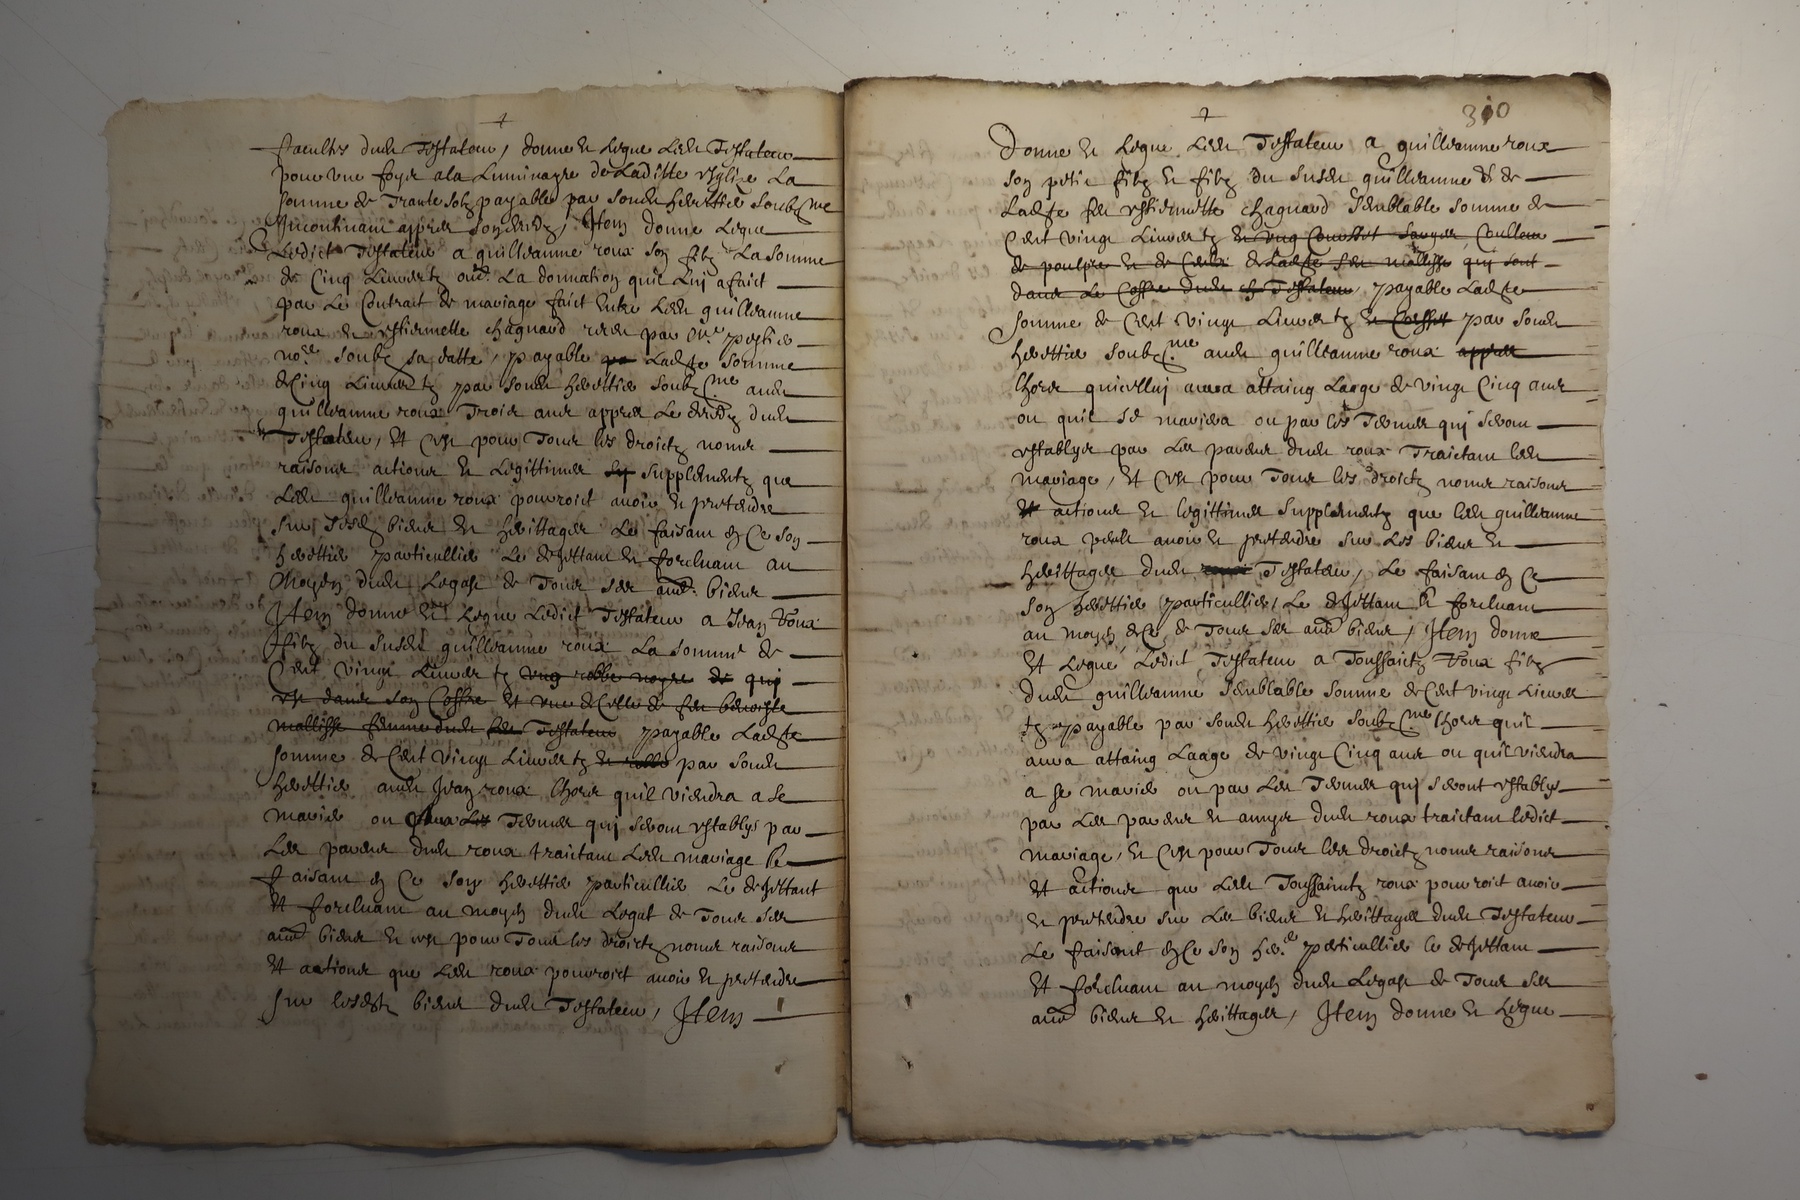 facultes dudt Testateur, donne et legue ledt Testateur
pour une foys a la Luminayre de Laditte esglize La
somme de Trante solz payable par sondt herettier soubz.me
Incontinant appres son decedz, Item donne Legue
Ledict Testateur a guilleaume roux son filz La somme
de Cinq Liuvres tz oud. La donnation quil Luj a faict
par Le Contrait de mariage faict entre Ledt guilleaume
roux et estiennette chagnard receu par me
no.re soubz sa datte, payable Ladte somme
de Cinq Liuvres tz par sondt herettier soubz.me audt
guilleaume roux Trois ans appres Le decedz dudt
Testateur, Et cest pour Tous les droictz noms
raisons actions et Legittimes supplementz que
Ledt guilleaume roux pourroict avoir et prettendre
sur sesdt biens et herittages Le faisant en Ce son
herettier particullier Le dejettant et forcluant au
Moyen dudt Legast de Tous ses aud. biens
Item donne et Legue Ledict Testateur a Jean Roux
filz du susdt guilleaume roux La somme de
Cent vingt Liuvres tz ung robbe noyre de qui
est dans son Coffre et une de Celle de feu benoiste
mallisse femme dudt Testateur payable Ladte
somme de Cent vingt Liuvres tz et robbe par sondt
herettier audt Jean roux Lhors quil viendra a se
marier ou Termes quj seront establys par
Les parens dudt roux traictant Ledt mariage Le
faisant en Ce son herettier particullier Le dejettant
Et forcluant au moyen dudt Legat de Tous ses
aud. biens et cest pour Tous les droictz noms raisons
Et actions que Ledt roux pourroict avoir et prettendre
sur lesdtz biens dudt Testateur, Item
310
Donne et Legue Ledt Testateur a guilleaume roux
son petit filz et filz du susdt guilleaume & de
Ladte estiennette chagnard Semblable somme de
Cent vingt Liuvres tz et ung Coulleur
de et de de Ladte feu mallisse quj sont
dans Le Coffre dudt Testateur, payable Ladte
somme de Cent vingt Liuvres tz par sondt
herettier soubz.me audt guilleaume roux appres
Lhors quicelluj aura attaing Laage de vingt Cinq ans
ou quil se mariera ou par les Termes quj seront
establys par Les parens dudt roux Traictant ledt
mariage, Et cest pour Tous les droictz noms raisons
Et actions et legittimes supplementz que ledt guilleaume
roux peult avoir et prettendre sur Les biens et
herittages dudt roux Testateur, Le faisant en Ce
son herettier particullier, Le dejettant et forcluant
au moyen de Ce de Tous ses aud. biens, Item donne
Et Legue Ledict Testateur a Toussainctz Roux filz
dudt guilleaume Semblable somme de Cent vingt Liuvres
tz payable par sondt herettier soubz.me Lhors quil
aura attaing Laage de vingt Cinq ans ou quil viendra
a se marier ou par Les Termes quj seront establys
par Les parens et amys dudt roux traictant ledict
mariage, Et cest pour Tous les droictz noms raisons
Et actions que Ledt Toussainctz roux pourroict avoir
et prettendre sur Les biens et herittages dudt Testateur
Le faisant en Ce son her.er particullier le dejettant
Et forcluant au moyen dudt Legast de Tous ses
aud. biens et herittages, Item donne et Legue